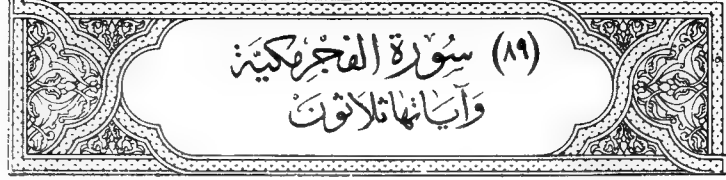 (٨٩) سُورَة الفَجْر مَكِيَّة
وَآيَاتُهَا ثَلَاثُونَ